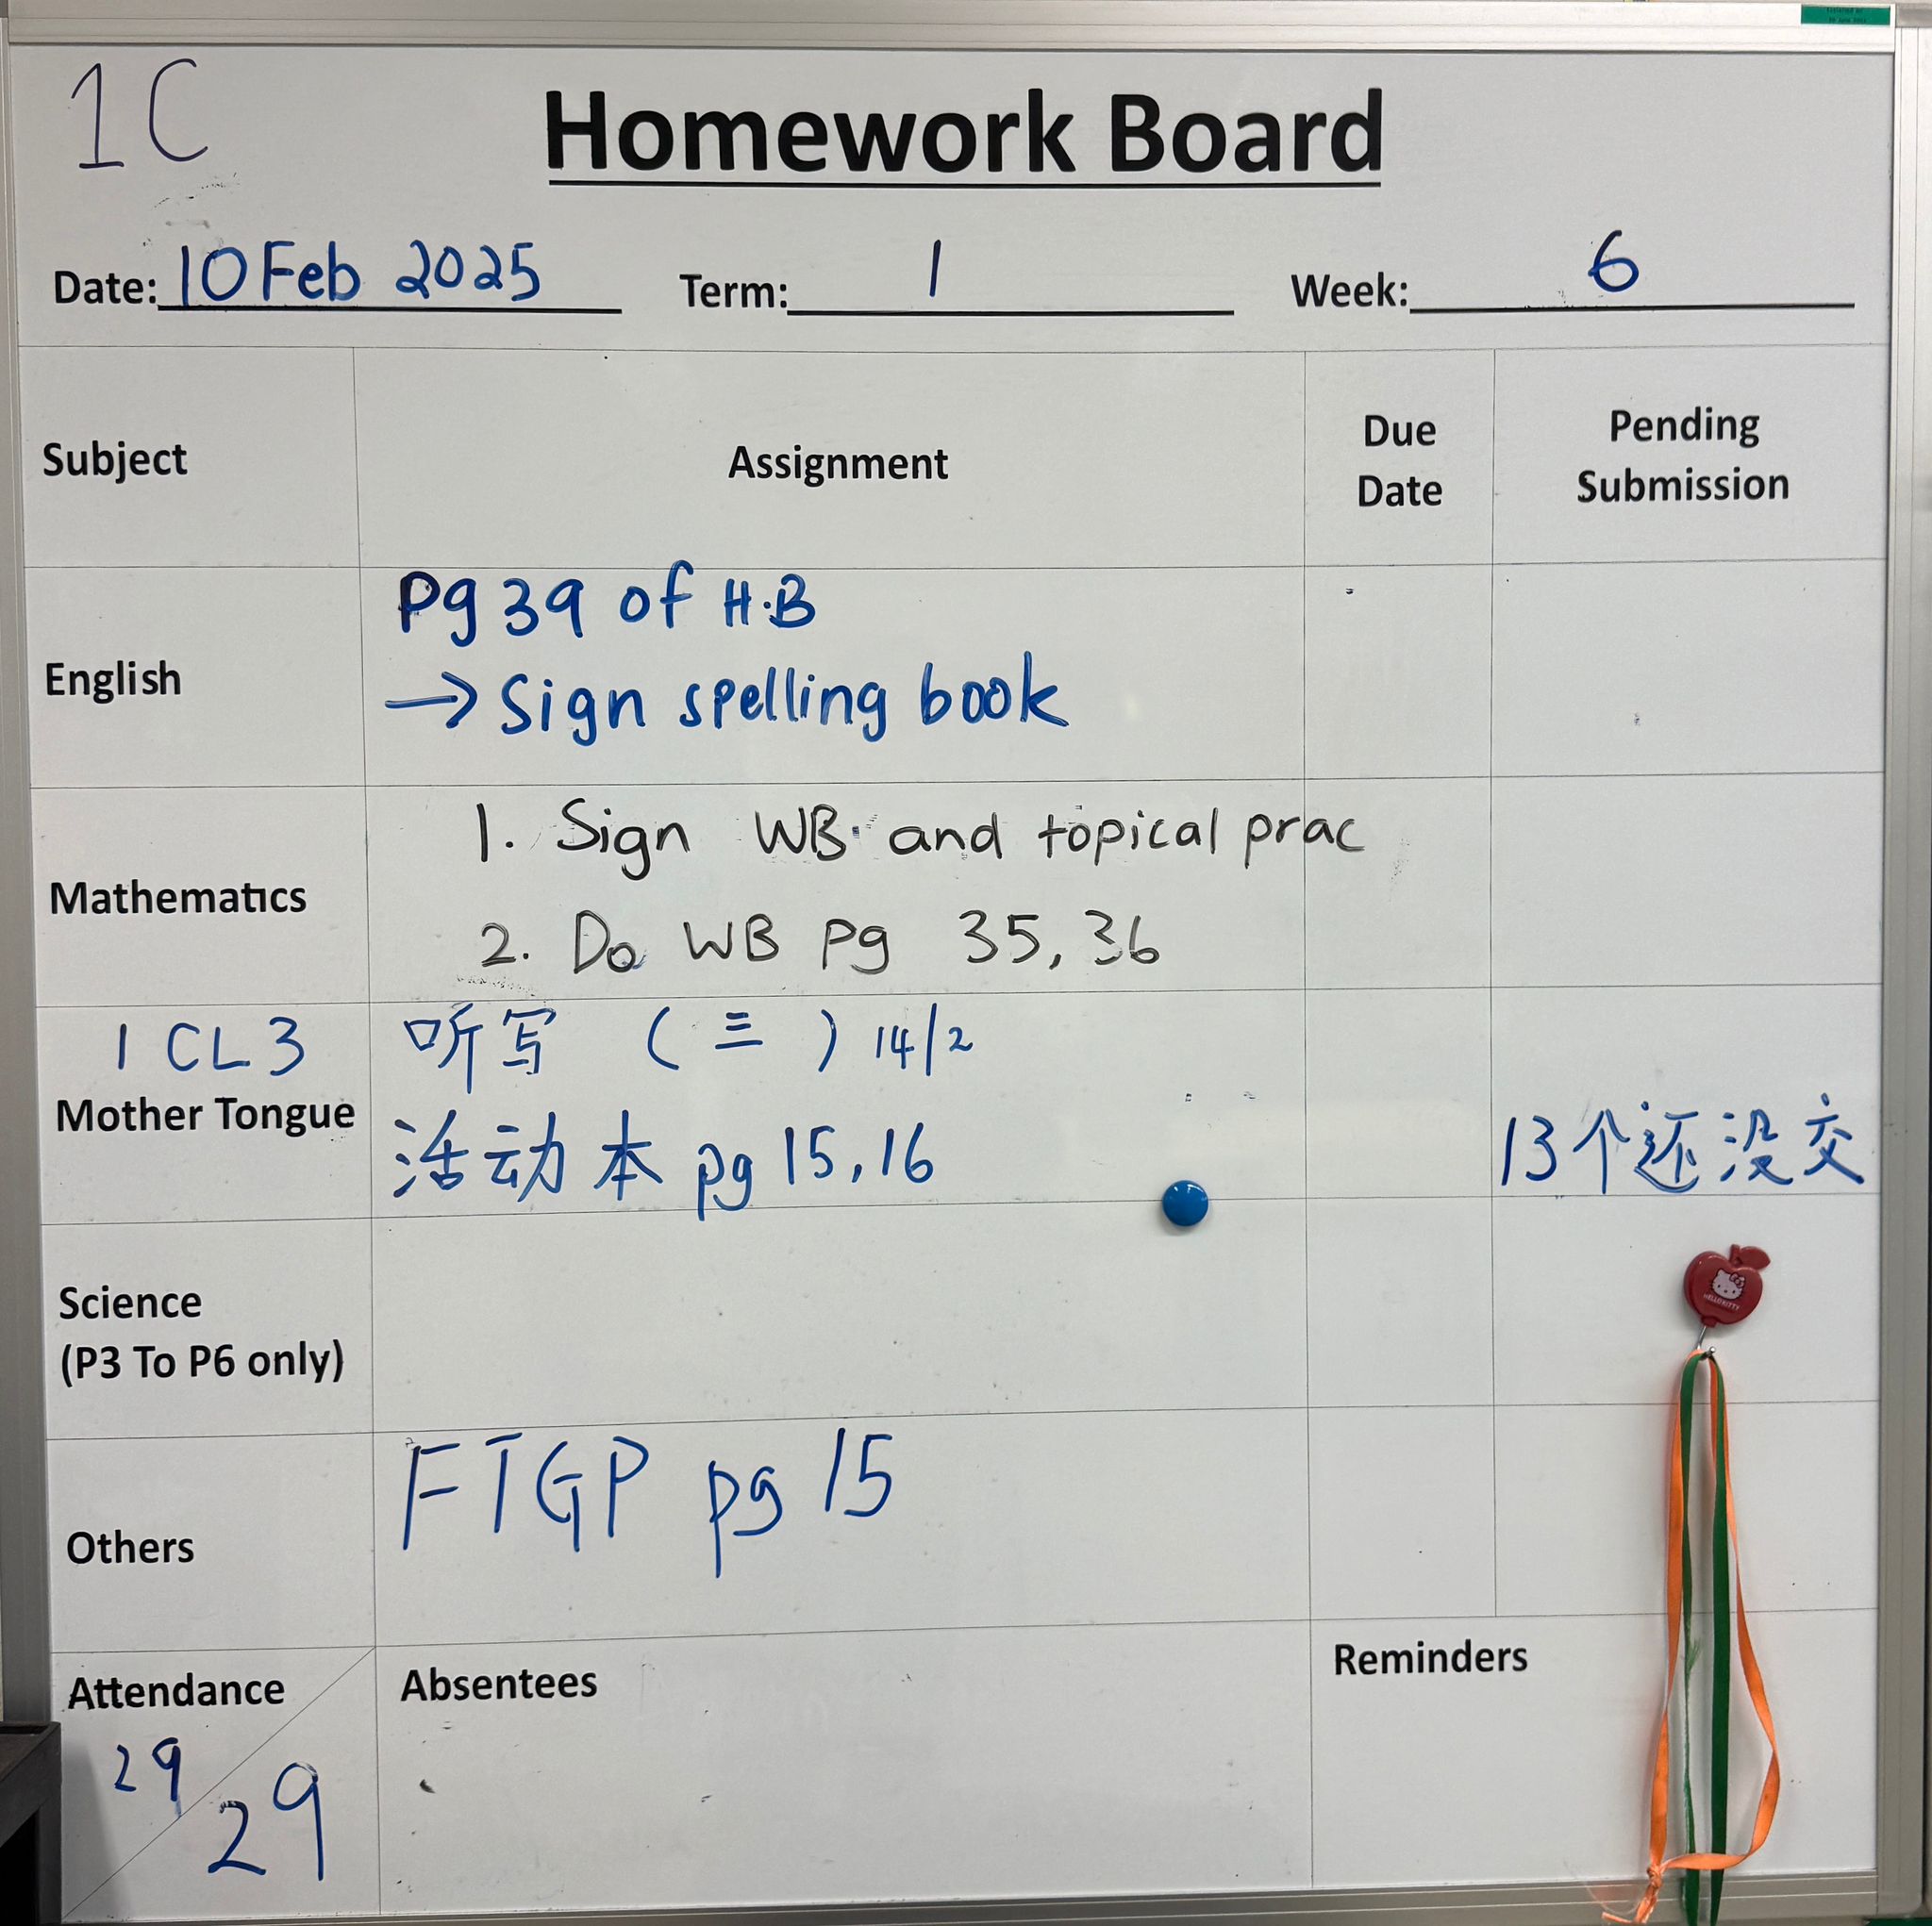 1C
Homework Board
Date: 10 Feb 2025 Term: 1 Week: 6
Subject Assignment Due Date Pending Submission
English
Pg 39 of H.B
→ Sign spelling book
Mathematics
1. Sign WB and topical prac
2. Do WB Pg 35, 36
1 CL3
Mother Tongue
听写 (三) 14/2
活动本 pg 15, 16
13个还没交
Science
(P3 To P6 only)
HELLO KITTY
Others
FTGP pg 15
Attendance
29/29
Absentees
Reminders